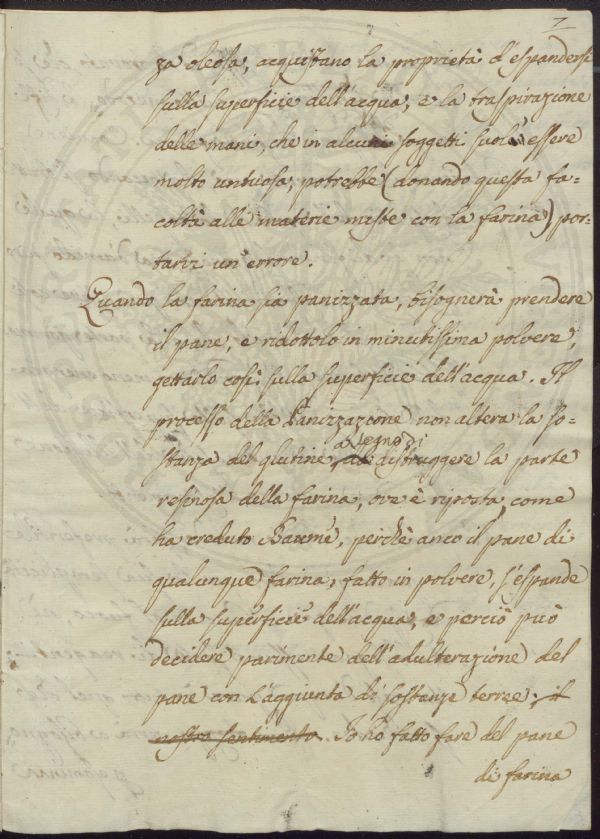 7
za oleosa, acquistano la proprietà d'espandersi
sulla superficie dell'acqua, e la traspirazione
delle mani, che in alcuni soggetti suole essere
molto untuosa, potrebbe (donando questa fa=
coltà alle materie miste con la farina) por=
tarvi un'errore.
Quando la farina sia panizzata, bisognerà prendere
il pane, e ridottolo in minutissima polvere,
gettarlo così sulla superficie dell'acqua. Il
processo della Panizzazione non altera la so=
a segno di
stanza del glutine, distruggere la parte
resinosa della farina, ove è riposta, come
ha creduto Baumé, perchè anco il pane di
qualunque farina, fatto in polvere, s'espande
sulla superficie dell'acqua, e perciò può
decidere parimente dell'adulterazione del
pane con l'aggiunta di sostanze terree; il
nostro sentimento. Io hò fatto fare del pane
di farina